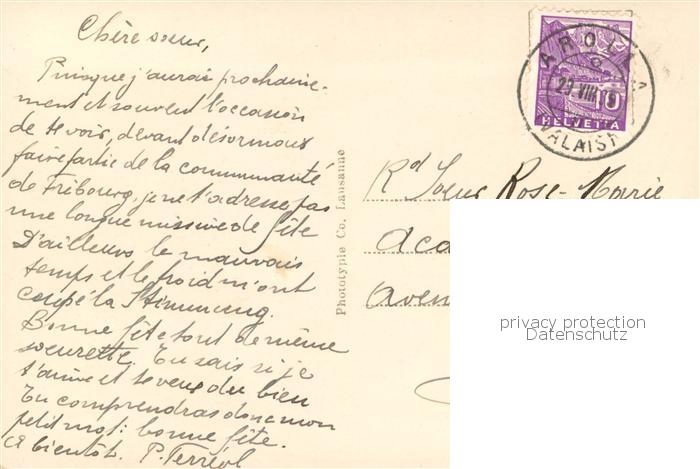 Chère sœur,
Puisque j'aurai prochaine-
ment et souvent l'occasion
de te voir, devant désormais
faire partie de la communauté
de Fribourg, je ne t'adresse pas
une longue missive de fête
D'ailleurs le mauvais
temps et le froid m'ont
coupé la Stimmung.
Bonne fête tout de même
soeurette. Tu sais si je
t'aime et te veux du bien
Tu comprendras donc mon
petit mot: bonne fête.
A bientôt. P.
Phototypie Co. Lausanne
AROLLA
29 VIII
VALAIS
10
HELVETIA
Rd Soeur Rose-Marie
Aca
Aven
privacy protection
Datenschutz